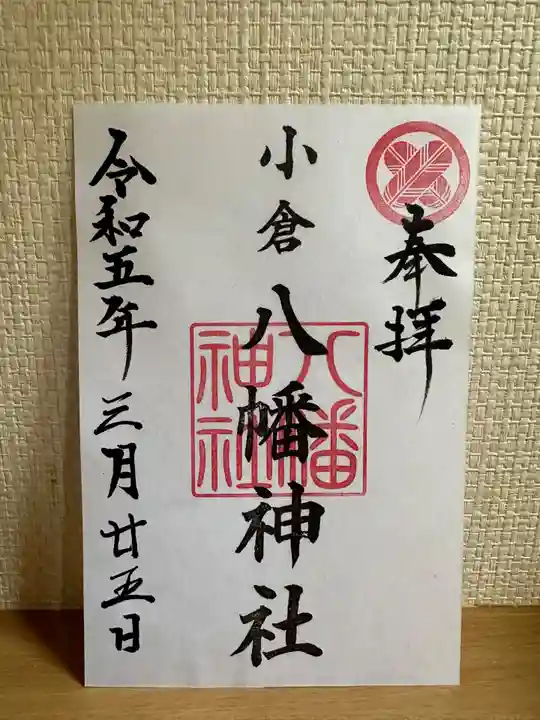 奉拝
小倉八幡神社
八幡神社
令和五年三月廿五日